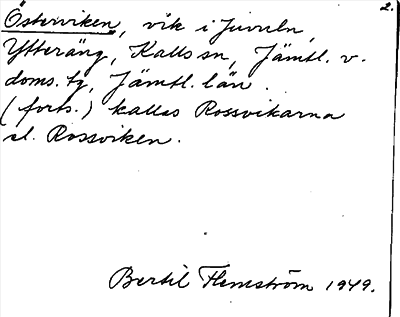 2.
Österviken, vik i Juvuln,
Ytteräng, Kalls sn, Jämtl. v.
doms. tg, Jämtl. län.
(forts.) kallas Rossvikarna
el. Rossviken.
Bertil Flemström 1949.